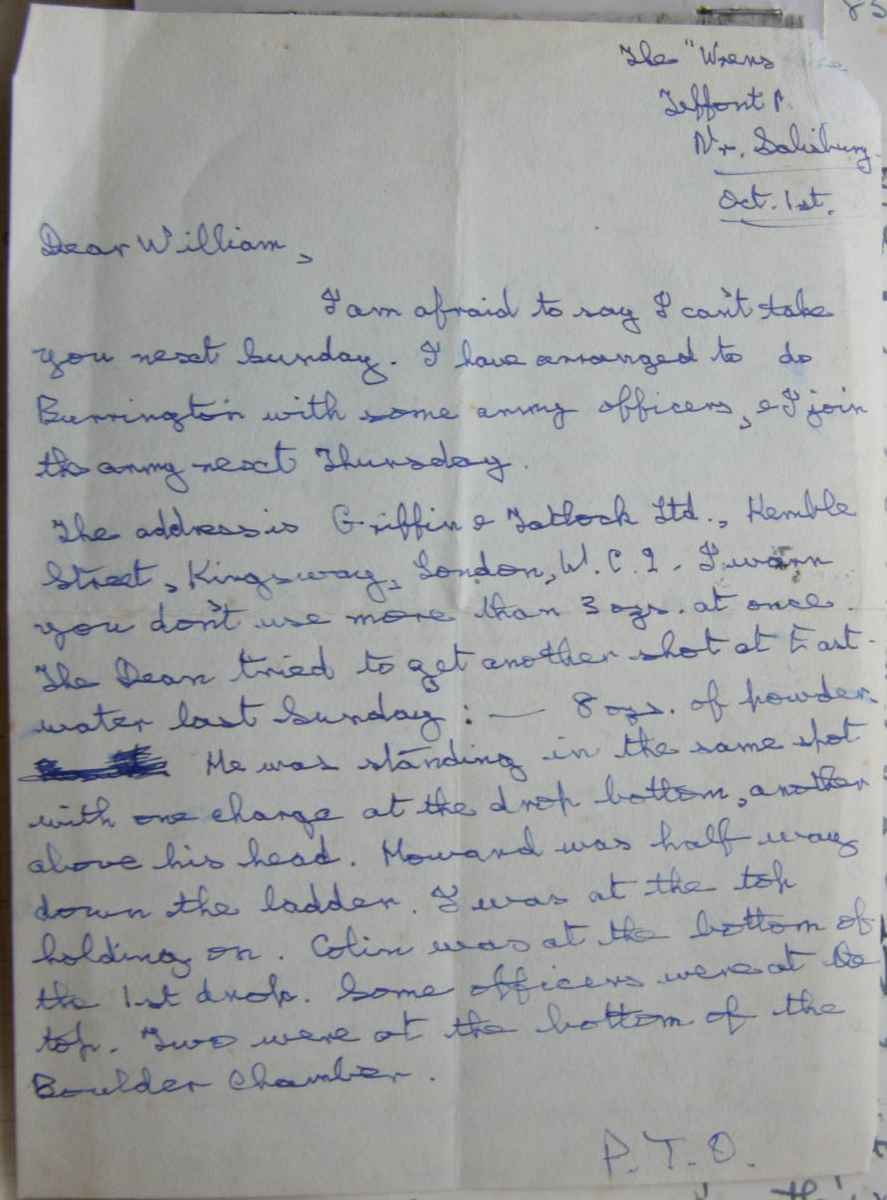 The "Wrens
Teffont
Nr. Salisbury.
Oct. 1st.
Dear William,
I am afraid to say I can't take
you next Sunday. I have arranged to do
Burrington with some army officers, & I join
the army next Thursday.
The address is Griffin & Tatlock Ltd., Kemble
Street, Kingsway, London, W.C.2. I warn
you don't use more than 3 ozs. at once.
The Dean tried to get another shot at East-
water last Sunday: — 8 ozs. of powder.
He was standing in the same spot
with one charge at the drop bottom, another
above his head. Howard was half way
down the ladder. I was at the top
holding on. Colin was at the bottom of
the 1st drop. Some officers were at the
top. Two were at the bottom of the
Boulder Chamber.
P.T.O.